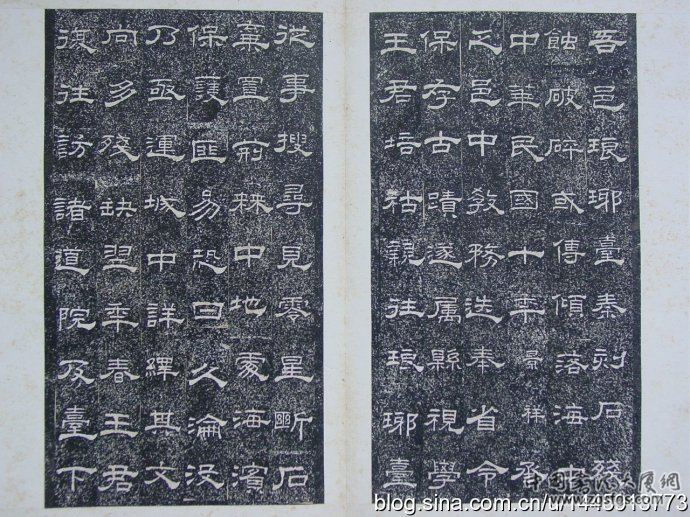 吾邑琅琊臺秦刻石殘
蝕破碎或傳傾落海中
中華民國十年景祥承
乏邑中敎務迭奉省令
保存古蹟遂属縣視學
王君培祜親往琅琊臺
從事搜尋見零星斷石
棄置荊棘中地處海濱
保護匪易恐日久淪没
乃亟運城中詳繹其文
尚多殘缺翌年春王君
復往訪諸道院及臺下
blog.sina.com.cn/u/1445013773